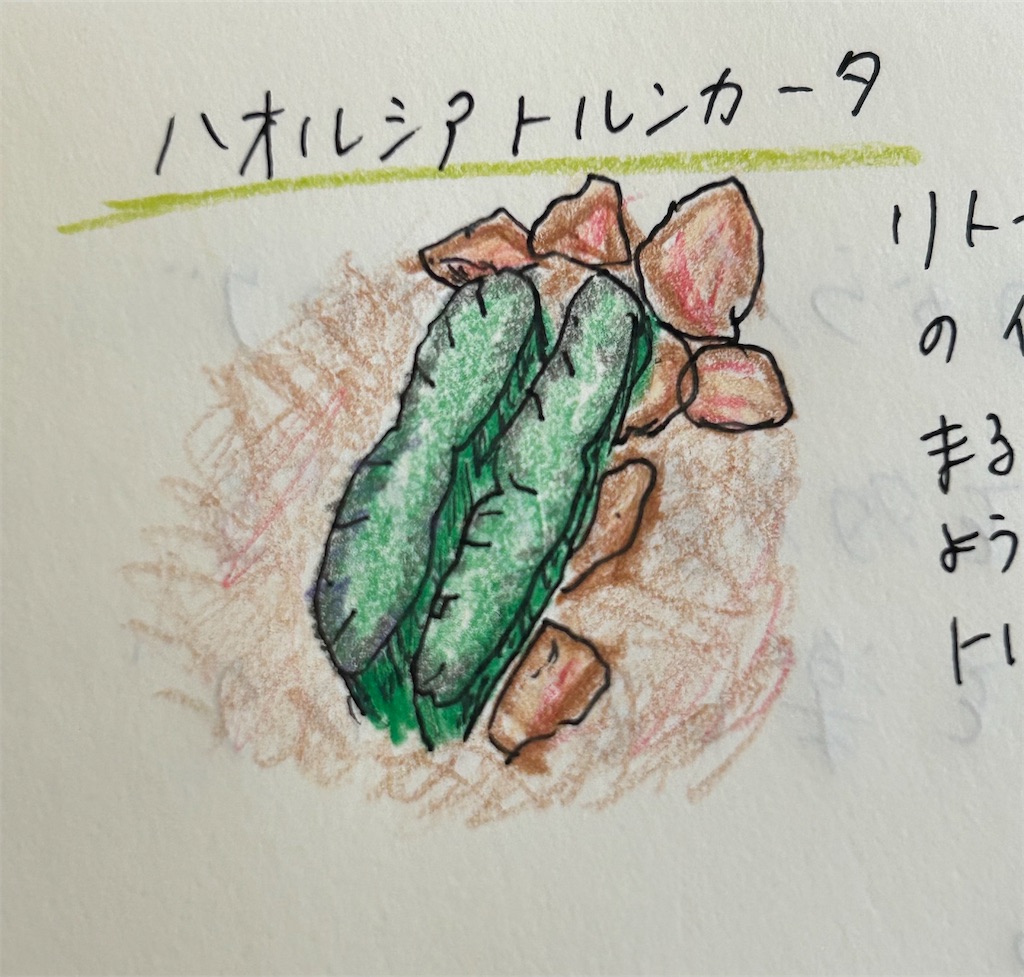 ハオルシアトルンカータ
リト
の
まる
よう
トル